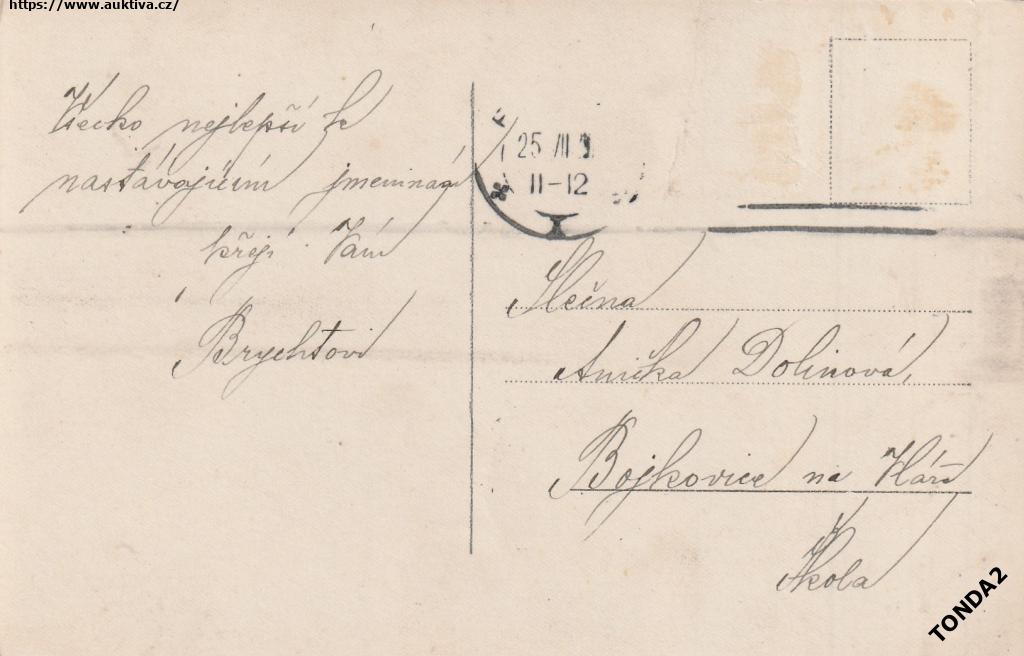 https://www.auktiva.cz/
Všecko nejlepší k
nastávajícím jmeninám
přejí Vám
Brychtovi
25 VII
11-12
Slečna
Anička Dolinová,
Bojkovice na
Škola
TONDA2